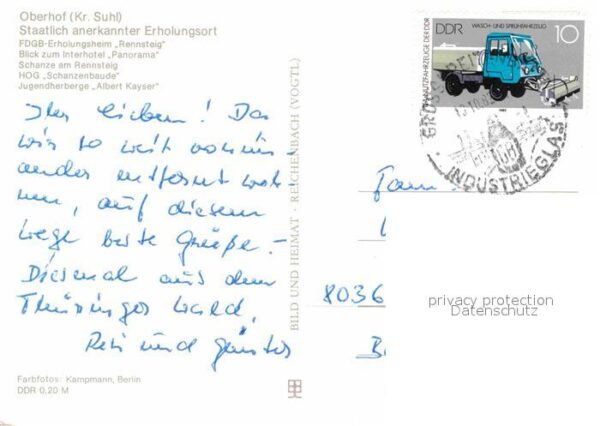 Oberhof (Kr. Suhl)
Staatlich anerkannter Erholungsort
FDGB-Erholungsheim „Rennsteig"
Blick zum Interhotel „Panorama"
Schanze am Rennsteig
HOG „Schanzenbaude"
Jugendherberge „Albert Kayser"
Ihr Lieben! Da
wir so weit vonein-
ander entfernt woh-
nen, auf diesem
Wege beste Grüße. -
Diesmal aus dem
Thüringer Wald.
und Günter
Farbfotos: Kampmann, Berlin
DDR 0,20 M
BILD UND HEIMAT · REICHENBACH (VOGTL)
DDR
WASCH- UND SPRÜHFAHRZEUG
10
NUTZFAHRZEUGE DER DDR
INDUSTRIEGLAS
Fam.
8036
privacy protection
Datenschutz